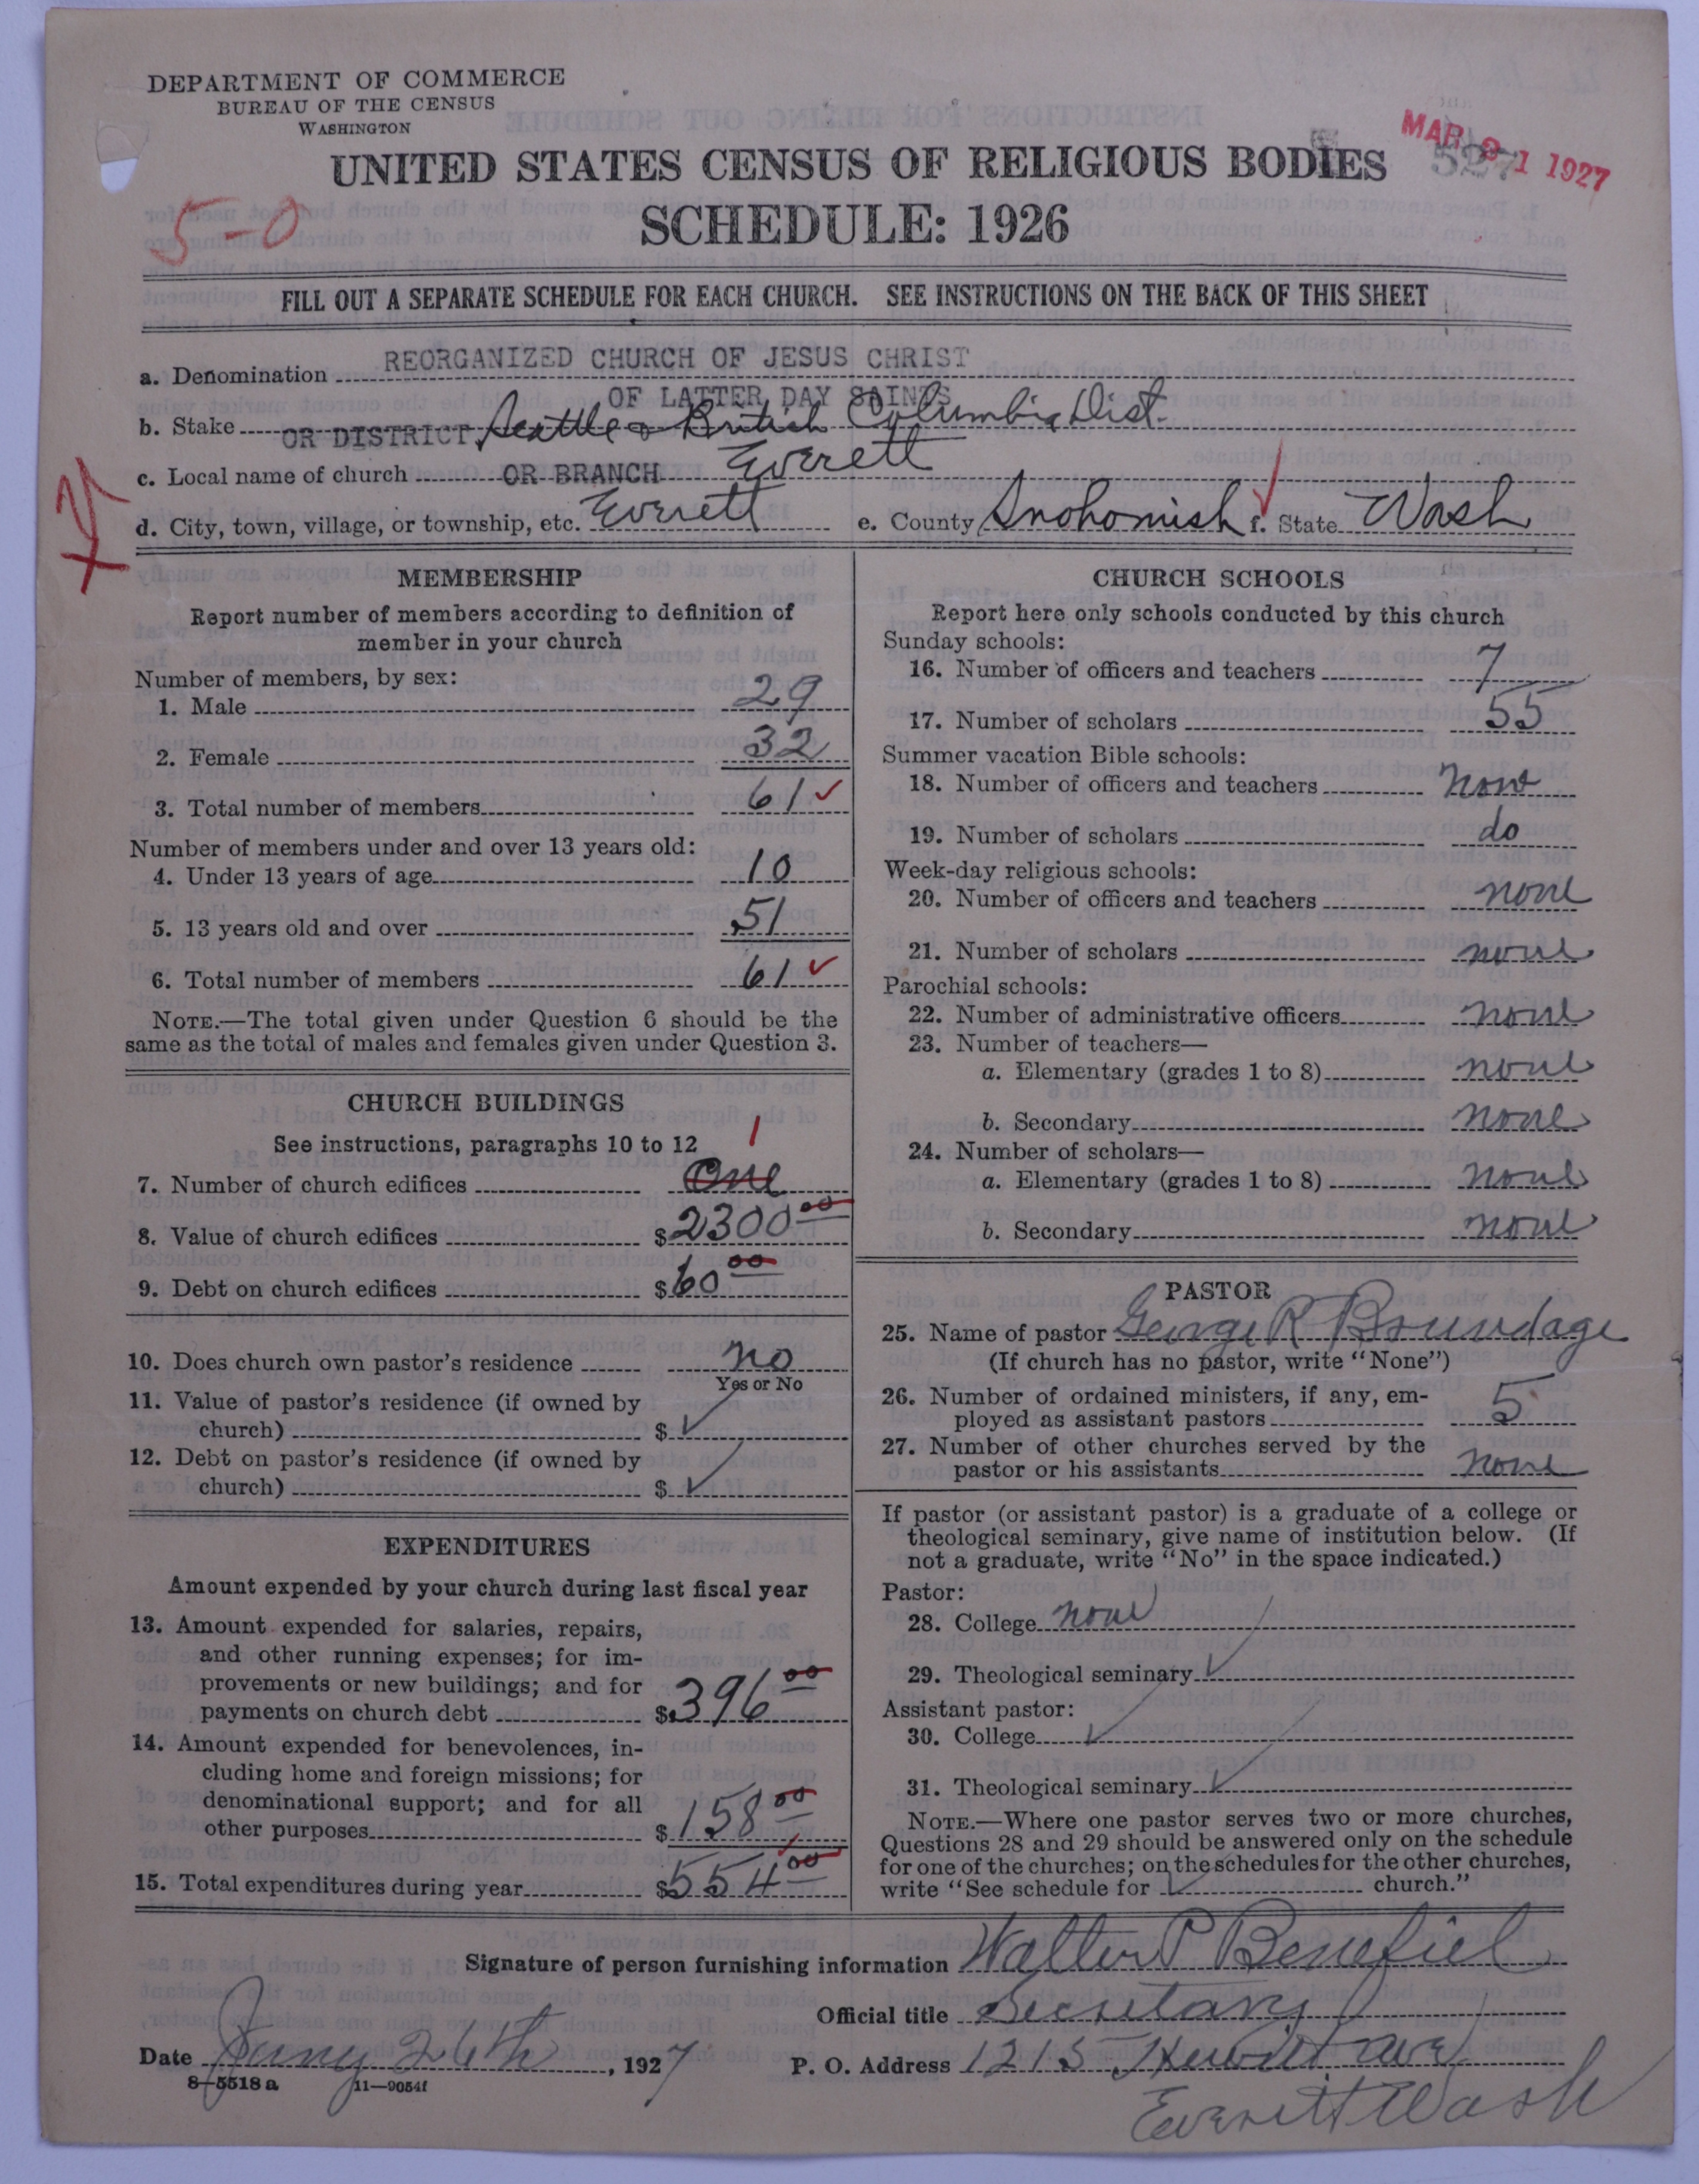 DEPARTMENT OF COMMERCE
BUREAU OF THE CENSUS
WASHINGTON
UNITED STATES CENSUS OF RELIGIOUS BODIES
MAR 31 1927
SCHEDULE: 1926
5-0
FILL OUT A SEPARATE SCHEDULE FOR EACH CHURCH. SEE INSTRUCTIONS ON THE BACK OF THIS SHEET
a. Denomination REORGANIZED CHURCH OF JESUS CHRIST
OF LATTER DAY SAINTS
b. Stake OR DISTRICT Seattle & British Columbia Dist.
c. Local name of church OR BRANCH Everett
d. City, town, village, or township, etc. Everett e. County Snohomish f. State Wash
MEMBERSHIP
Report number of members according to definition of
member in your church
Number of members, by sex:
1. Male 29
2. Female 32
3. Total number of members 61 ✓
Number of members under and over 13 years old:
4. Under 13 years of age 10
5. 13 years old and over 51
6. Total number of members 61 ✓
NOTE.—The total given under Question 6 should be the
same as the total of males and females given under Question 3.
CHURCH BUILDINGS
See instructions, paragraphs 10 to 12
1
7. Number of church edifices One
8. Value of church edifices $2300 00
9. Debt on church edifices $60 00
10. Does church own pastor's residence no
Yes or No
11. Value of pastor's residence (if owned by
church) $ ✓
12. Debt on pastor's residence (if owned by
church) $ ✓
EXPENDITURES
Amount expended by your church during last fiscal year
13. Amount expended for salaries, repairs,
and other running expenses; for im-
provements or new buildings; and for
payments on church debt $396 00
14. Amount expended for benevolences, in-
cluding home and foreign missions; for
denominational support; and for all
other purposes $158 00
15. Total expenditures during year $554 00
CHURCH SCHOOLS
Report here only schools conducted by this church
Sunday schools:
16. Number of officers and teachers 7
17. Number of scholars 55
Summer vacation Bible schools:
18. Number of officers and teachers none
19. Number of scholars do
Week-day religious schools:
20. Number of officers and teachers none
21. Number of scholars none
Parochial schools:
22. Number of administrative officers none
23. Number of teachers—
a. Elementary (grades 1 to 8) none
b. Secondary none
24. Number of scholars—
a. Elementary (grades 1 to 8) none
b. Secondary none
PASTOR
25. Name of pastor George R Brundage
(If church has no pastor, write "None")
26. Number of ordained ministers, if any, em-
ployed as assistant pastors 5
27. Number of other churches served by the
pastor or his assistants none
If pastor (or assistant pastor) is a graduate of a college or
theological seminary, give name of institution below. (If
not a graduate, write "No" in the space indicated.)
Pastor:
28. College none
29. Theological seminary ✓
Assistant pastor:
30. College ✓
31. Theological seminary ✓
NOTE.—Where one pastor serves two or more churches,
Questions 28 and 29 should be answered only on the schedule
for one of the churches; on the schedules for the other churches,
write "See schedule for ✓ church."
Signature of person furnishing information Walter P Benefiel
Official title Secretary
Date 26th, 1927 P. O. Address 1215 Hewitt ave
8-5518 a 11—9054f
Everett Wash